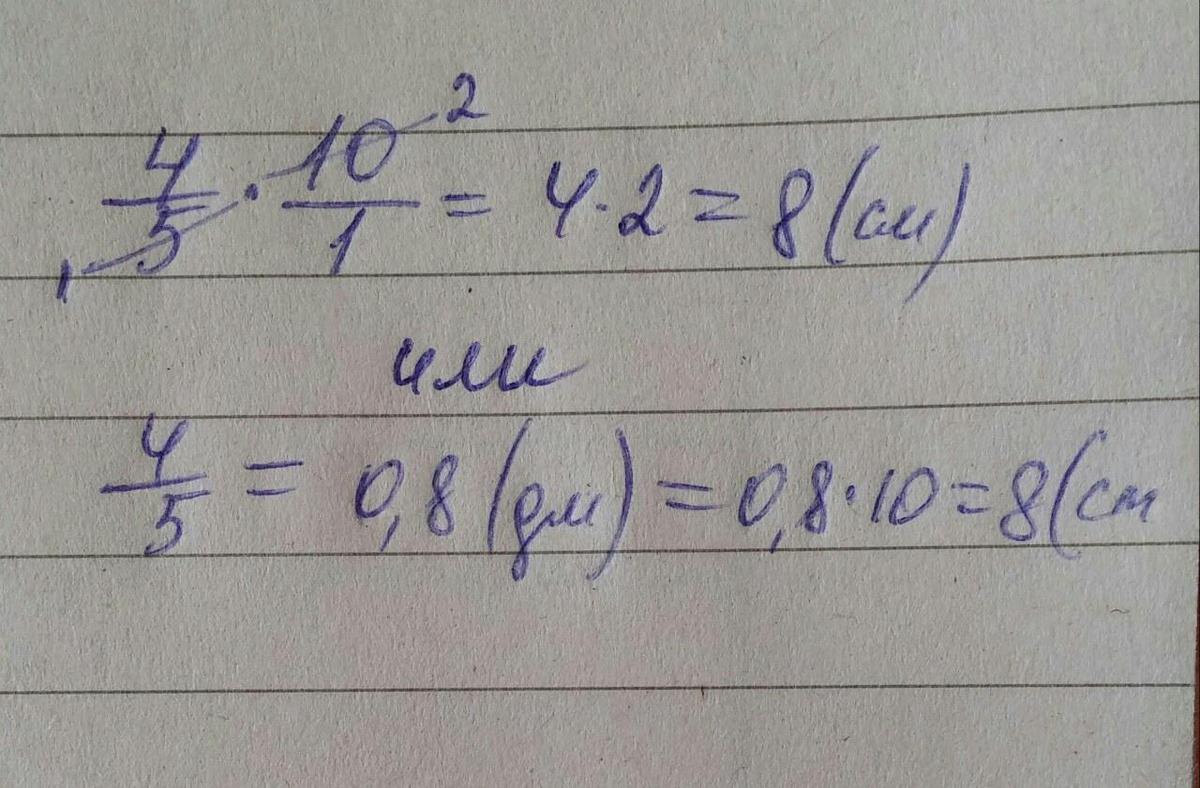 4/5 · 10/1 = 4·2 = 8 (см)
или
4/5 = 0,8 (дм) = 0,8·10 = 8 (см